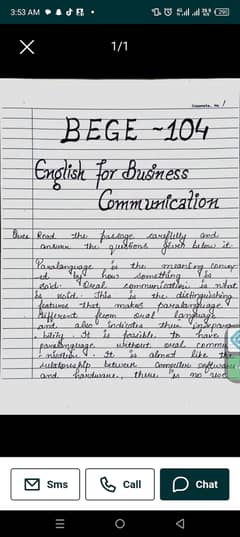 3:53 AM
1/1
BEGE - 104
English for Business
Communication
Read the passage carefully and
answer the questions given below it
Paralanguage is the meaning convey
ed by how something is
said. Oral communication is what
is said. This is the distinguishing
features that makes paralanguage
different from oral language
and also indicates their insepara
bility. It is possible to have
paralanguage without oral commu
nication. It is almost like the
relationship between computer software
and hardware, there is no use
Sms
Call
Chat